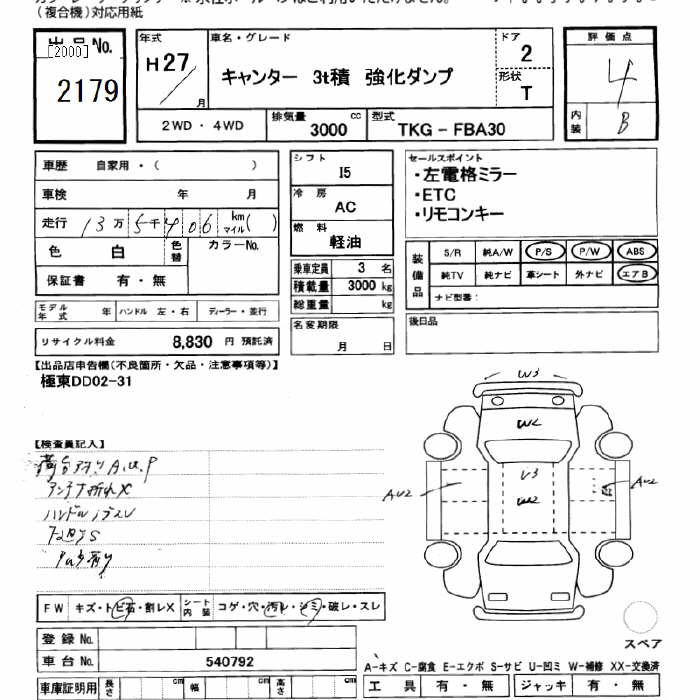 (複合機)対応用紙
出品 No.
[2000]
2179
年式
H27/
月
車名・グレード
キャンター 3t積 強化ダンプ
ドア
2
形状
T
評価点
4
内装
B
2WD ・ 4WD
排気量
3000
cc
型式
TKG - FBA30
車歴 自家用・( )
車検 年 月
走行 13万5千406 km マイル( )
色 白
色替
カラーNo.
保証書 有・無
モデル年式 年
ハンドル 左・右
ディーラー・並行
リサイクル料金 8,830 円 預託済
シフト
I5
冷房
AC
燃料
軽油
乗車定員 3 名
積載量 3000 kg
総重量 kg
名変期限
月 日
セールスポイント
・左電格ミラー
・ETC
・リモコンキー
装備品
S/R 純A/W P/S P/W ABS
純TV 純ナビ 革シート 外ナビ エアB
ナビ型番:
後日品
【出品店申告欄(不良箇所・欠品・注意事項等)】
極東DD02-31
【検査員記入】
アンテナ折れX
W3
W2
V3
W2
AU2
AU2
FW キズ・トビ石・割レX
シート内装 コゲ・穴・汚レ・シミ・破レ・スレ
登録 No.
車台 No. 540792
車庫証明用 長さ cm 幅 cm 高さ cm
スペア
A-キズ C-腐食 E-エクボ S-サビ U-凹ミ W-補修 XX-交換済
工具 有・無 ジャッキ 有・無